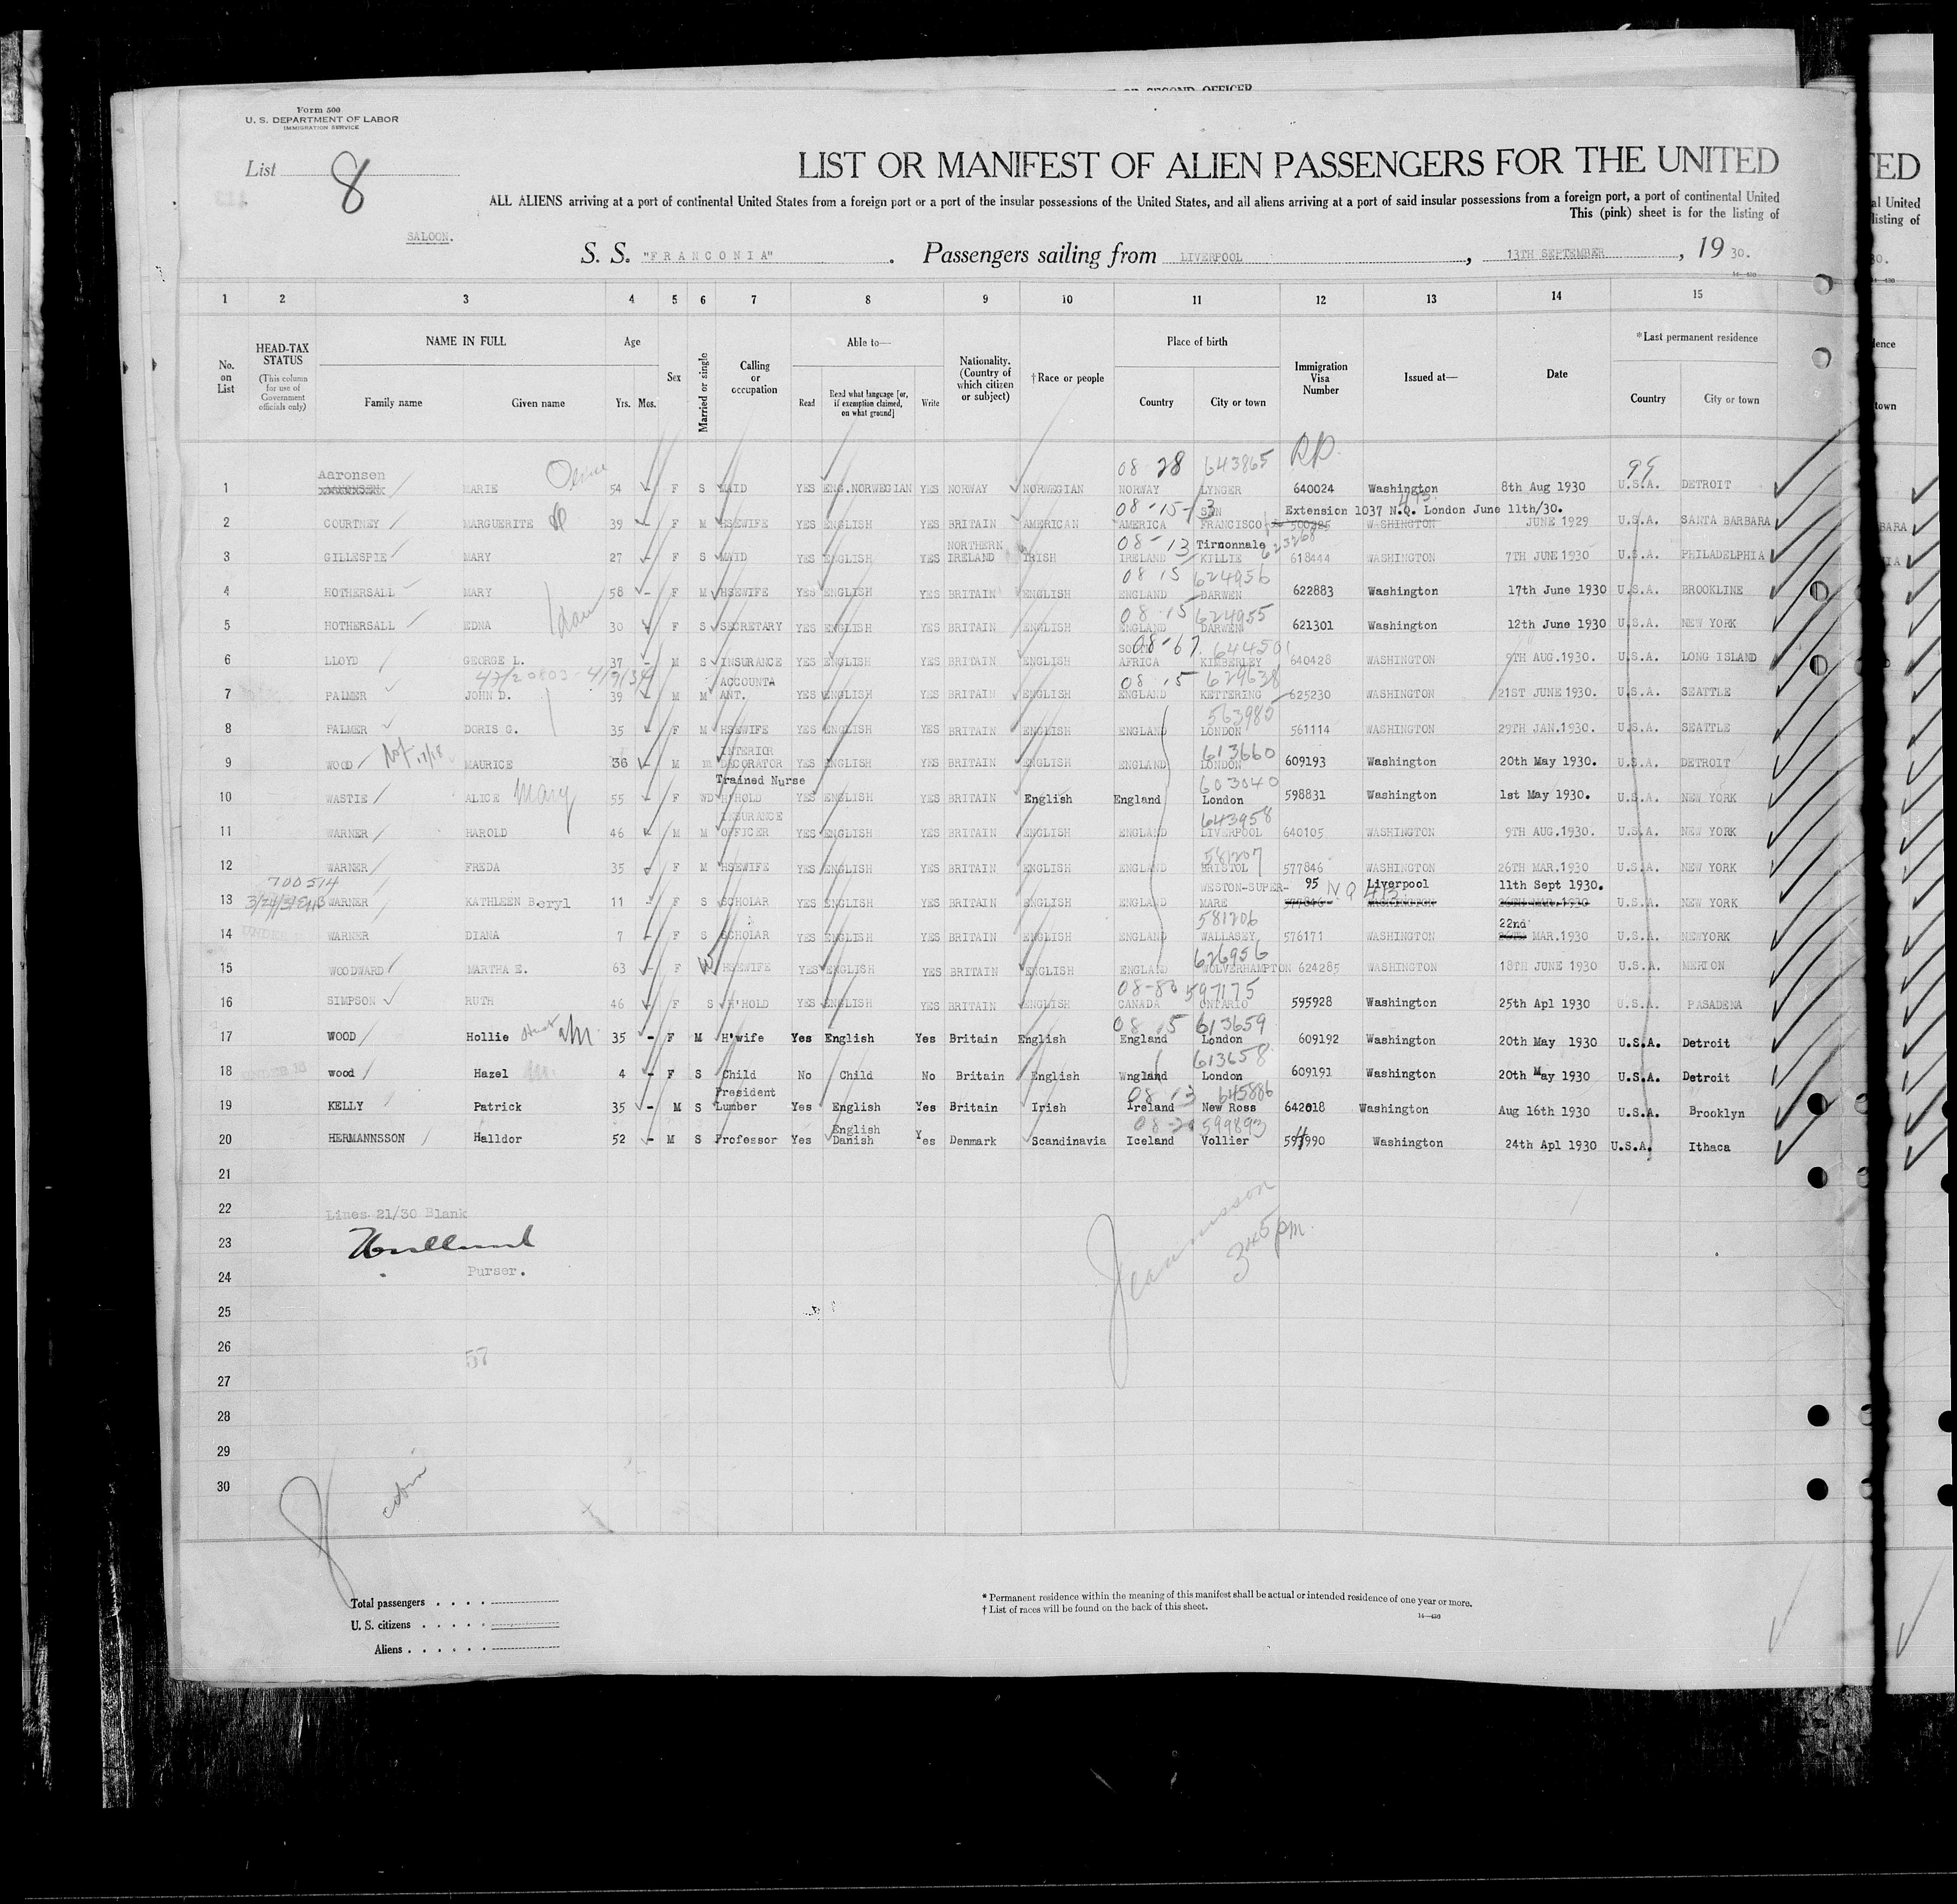 OF SECOND OFFICER
Form 500
U. S. DEPARTMENT OF LABOR
IMMIGRATION SERVICE
List 8
LIST OR MANIFEST OF ALIEN PASSENGERS FOR THE UNITED
ALL ALIENS arriving at a port of continental United States from a foreign port or a port of the insular possessions of the United States, and all aliens arriving at a port of said insular possessions from a foreign port, a port of continental United
This (pink) sheet is for the listing of
SALOON.
S. S. "FRANCONIA" . Passengers sailing from LIVERPOOL , 13TH SEPTEMBER , 19 30.
1 2 3 4 5 6 7 8 9 10 11 12 13 14 15
No. on List
HEAD-TAX STATUS (This column for use of Government officials only)
NAME IN FULL Family name Given name
Age Yrs. Mos.
Sex
Married or single
Calling or occupation
Able to— Read Read what language [or, if exemption claimed, on what ground] Write
Nationality. (Country of which citizen or subject)
†Race or people
Place of birth Country City or town
Immigration Visa Number
Issued at—
Date
*Last permanent residence Country City or town
08 28 643865
Aaronsen
1 MARIE 54 F S MAID YES ENG.NORWEGIAN YES NORWAY NORWEGIAN NORWAY LYNGER 640024 Washington 8th Aug 1930 U.S.A. DETROIT
08-15 SAN Extension 1037 N.Q. London June 11th/30.
2 COURTNEY MARGUERITE 39 F M HSEWIFE YES ENGLISH YES BRITAIN AMERICAN AMERICA FRANCISCO 500325 WASHINGTON JUNE 1929 U.S.A. SANTA BARBARA
NORTHERN 08-13 Tirconnale 623268
3 GILLESPIE MARY 27 F S MAID YES ENGLISH YES IRELAND IRISH IRELAND KILLIE 618444 WASHINGTON 7TH JUNE 1930 U.S.A. PHILADELPHIA
08 15 624956
4 HOTHERSALL MARY 58 F M HSEWIFE YES ENGLISH YES BRITAIN ENGLISH ENGLAND DARWEN 622883 Washington 17th June 1930 U.S.A. BROOKLINE
08 15 624955
5 HOTHERSALL EDNA 30 F S SECRETARY YES ENGLISH YES BRITAIN ENGLISH ENGLAND DARWEN 621301 Washington 12th June 1930 U.S.A. NEW YORK
SOUTH 08-67 644501
6 LLOYD GEORGE L. 37 M S INSURANCE YES ENGLISH YES BRITAIN ENGLISH AFRICA KIMBERLEY 640428 WASHINGTON 9TH AUG.1930. U.S.A. LONG ISLAND
ACCOUNTA 08 15 629638
7 PALMER JOHN D. 39 M M ANT. YES ENGLISH YES BRITAIN ENGLISH ENGLAND KETTERING 625230 WASHINGTON 21ST JUNE 1930. U.S.A. SEATTLE
563980
8 PALMER DORIS G. 35 F M HSEWIFE YES ENGLISH YES BRITAIN ENGLISH ENGLAND LONDON 561114 WASHINGTON 29TH JAN.1930. U.S.A. SEATTLE
INTERIOR 613660
9 WOOD MAURICE 36 M m DECORATOR YES ENGLISH YES BRITAIN ENGLISH ENGLAND LONDON 609193 Washington 20th May 1930. U.S.A. DETROIT
Trained Nurse 603040
10 WASTIE ALICE Mary 55 F WD H'HOLD YES ENGLISH YES BRITAIN English England London 598831 Washington 1st May 1930. U.S.A. NEW YORK
INSURANCE 643958
11 WARNER HAROLD 46 M M OFFICER YES ENGLISH YES BRITAIN ENGLISH ENGLAND LIVERPOOL 640105 WASHINGTON 9TH AUG.1930. U.S.A. NEW YORK
581207
12 WARNER FREDA 35 F M HSEWIFE YES ENGLISH YES BRITAIN ENGLISH ENGLAND BRISTOL 577846 WASHINGTON 26TH MAR.1930 U.S.A. NEW YORK
700514 WESTON-SUPER- 95 N Q Liverpool 11th Sept 1930.
13 WARNER KATHLEEN Beryl 11 F S SCHOLAR YES ENGLISH YES BRITAIN ENGLISH ENGLAND MARE 577846 WASHINGTON 26TH MAR.1930 U.S.A. NEW YORK
581206 22nd
14 UNDER 16 WARNER DIANA 7 F S SCHOLAR YES ENGLISH YES BRITAIN ENGLISH ENGLAND WALLASEY 576171 WASHINGTON 26TH MAR.1930 U.S.A. NEWYORK
626956
15 WOODWARD MARTHA E. 63 F W HSEWIFE YES ENGLISH YES BRITAIN ENGLISH ENGLAND WOLVERHAMPTON 624285 WASHINGTON 18TH JUNE 1930 U.S.A. MERION
08-83 597175
16 SIMPSON RUTH 46 F S H'HOLD YES ENGLISH YES BRITAIN ENGLISH CANADA ONTARIO 595928 Washington 25th Apl 1930 U.S.A. PASADENA
08 15 613659
17 WOOD Hollie 35 - F M H'wife Yes English Yes Britain English England London 609192 Washington 20th May 1930 U.S.A. Detroit
613658
18 UNDER 16 wood Hazel 4 - F S Child No Child No Britain English Wngland London 609191 Washington 20th May 1930 U.S.A. Detroit
President 08 13 645886
19 KELLY Patrick 35 - M S Lumber Yes English Yes Britain Irish Ireland New Ross 642018 Washington Aug 16th 1930 U.S.A. Brooklyn
English 599893
20 HERMANNSSON Halldor 52 - M S Professor Yes Danish Yes Denmark Scandinavia Iceland Vollier 594990 Washington 24th Apl 1930 U.S.A. Ithaca
21
22 Lines 21/30 Blank
23
24 Purser.
345 pm
25
26
57
27
28
29
30
Total passengers
U. S. citizens
Aliens
* Permanent residence within the meaning of this manifest shall be actual or intended residence of one year or more.
† List of races will be found on the back of this sheet.
14—430